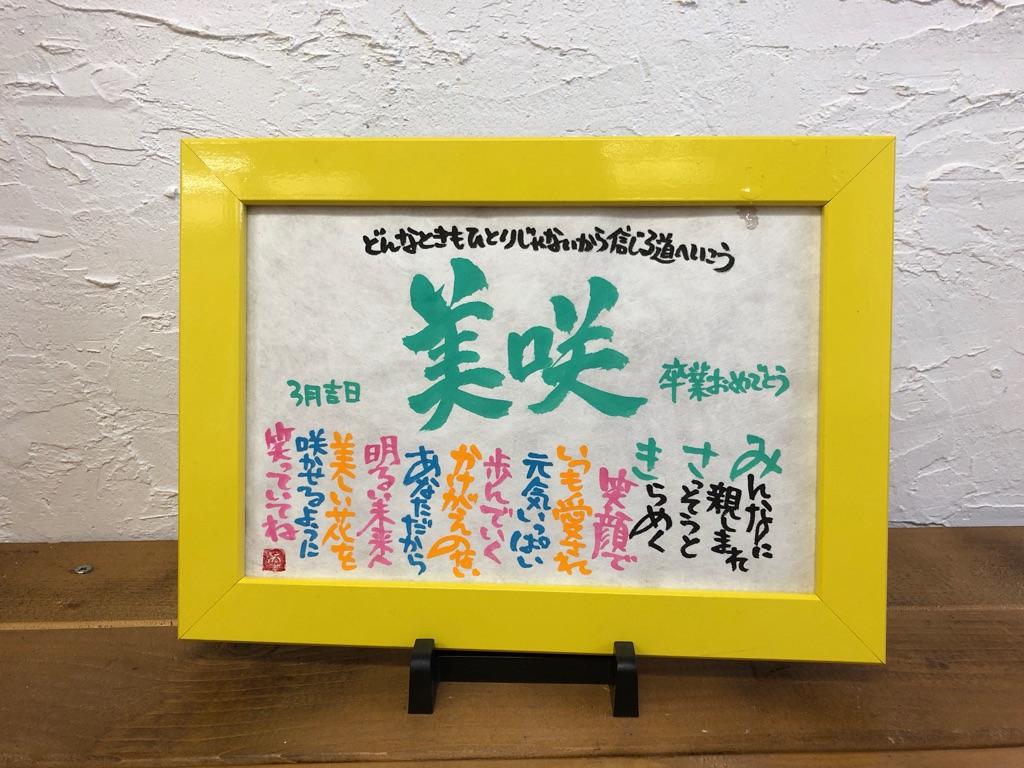 どんなときもひとりじゃないから信じる道へいこう
美咲
卒業おめでとう
3月吉日
みんなに
親しまれ
さっそうと
きらめく
笑顔で
いつも愛され
元気いっぱい
歩んでいく
かけがえのない
あなただから
明るい未来へ
美しい花を
咲かせるように
笑っていてね